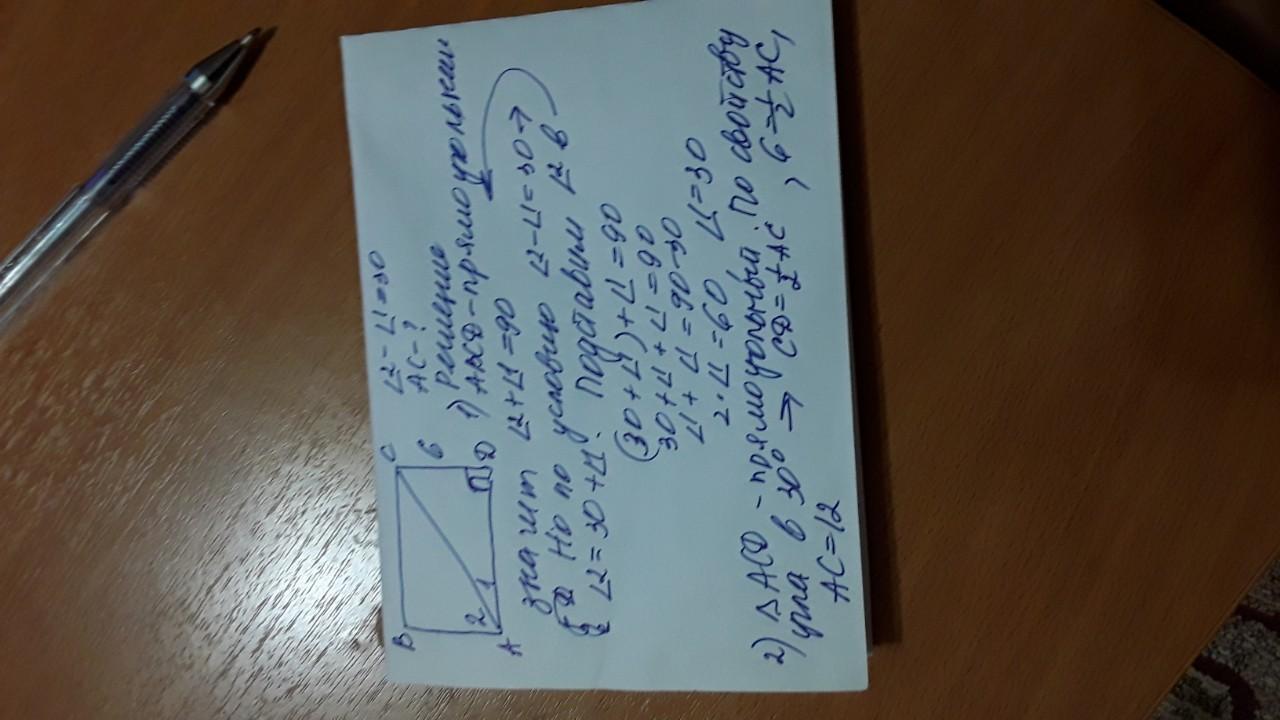 B C
∠2 - ∠1 = 30
AC - ?
6
2 1
A D
Решение
1) ABCD - прямоугольник
значит ∠2 + ∠1 = 90
Но по условию ∠2 - ∠1 = 30 →
∠2 = 30 + ∠1. Подставим ∠2 в
(30 + ∠1) + ∠1 = 90
30 + ∠1 + ∠1 = 90
∠1 + ∠1 = 90 - 30
2 · ∠1 = 60 ∠1 = 30
2) △ ACD - прямоугольный. По свойству
угла в 30° → CD = 1/2 AC, 6 = 1/2 AC,
AC = 12